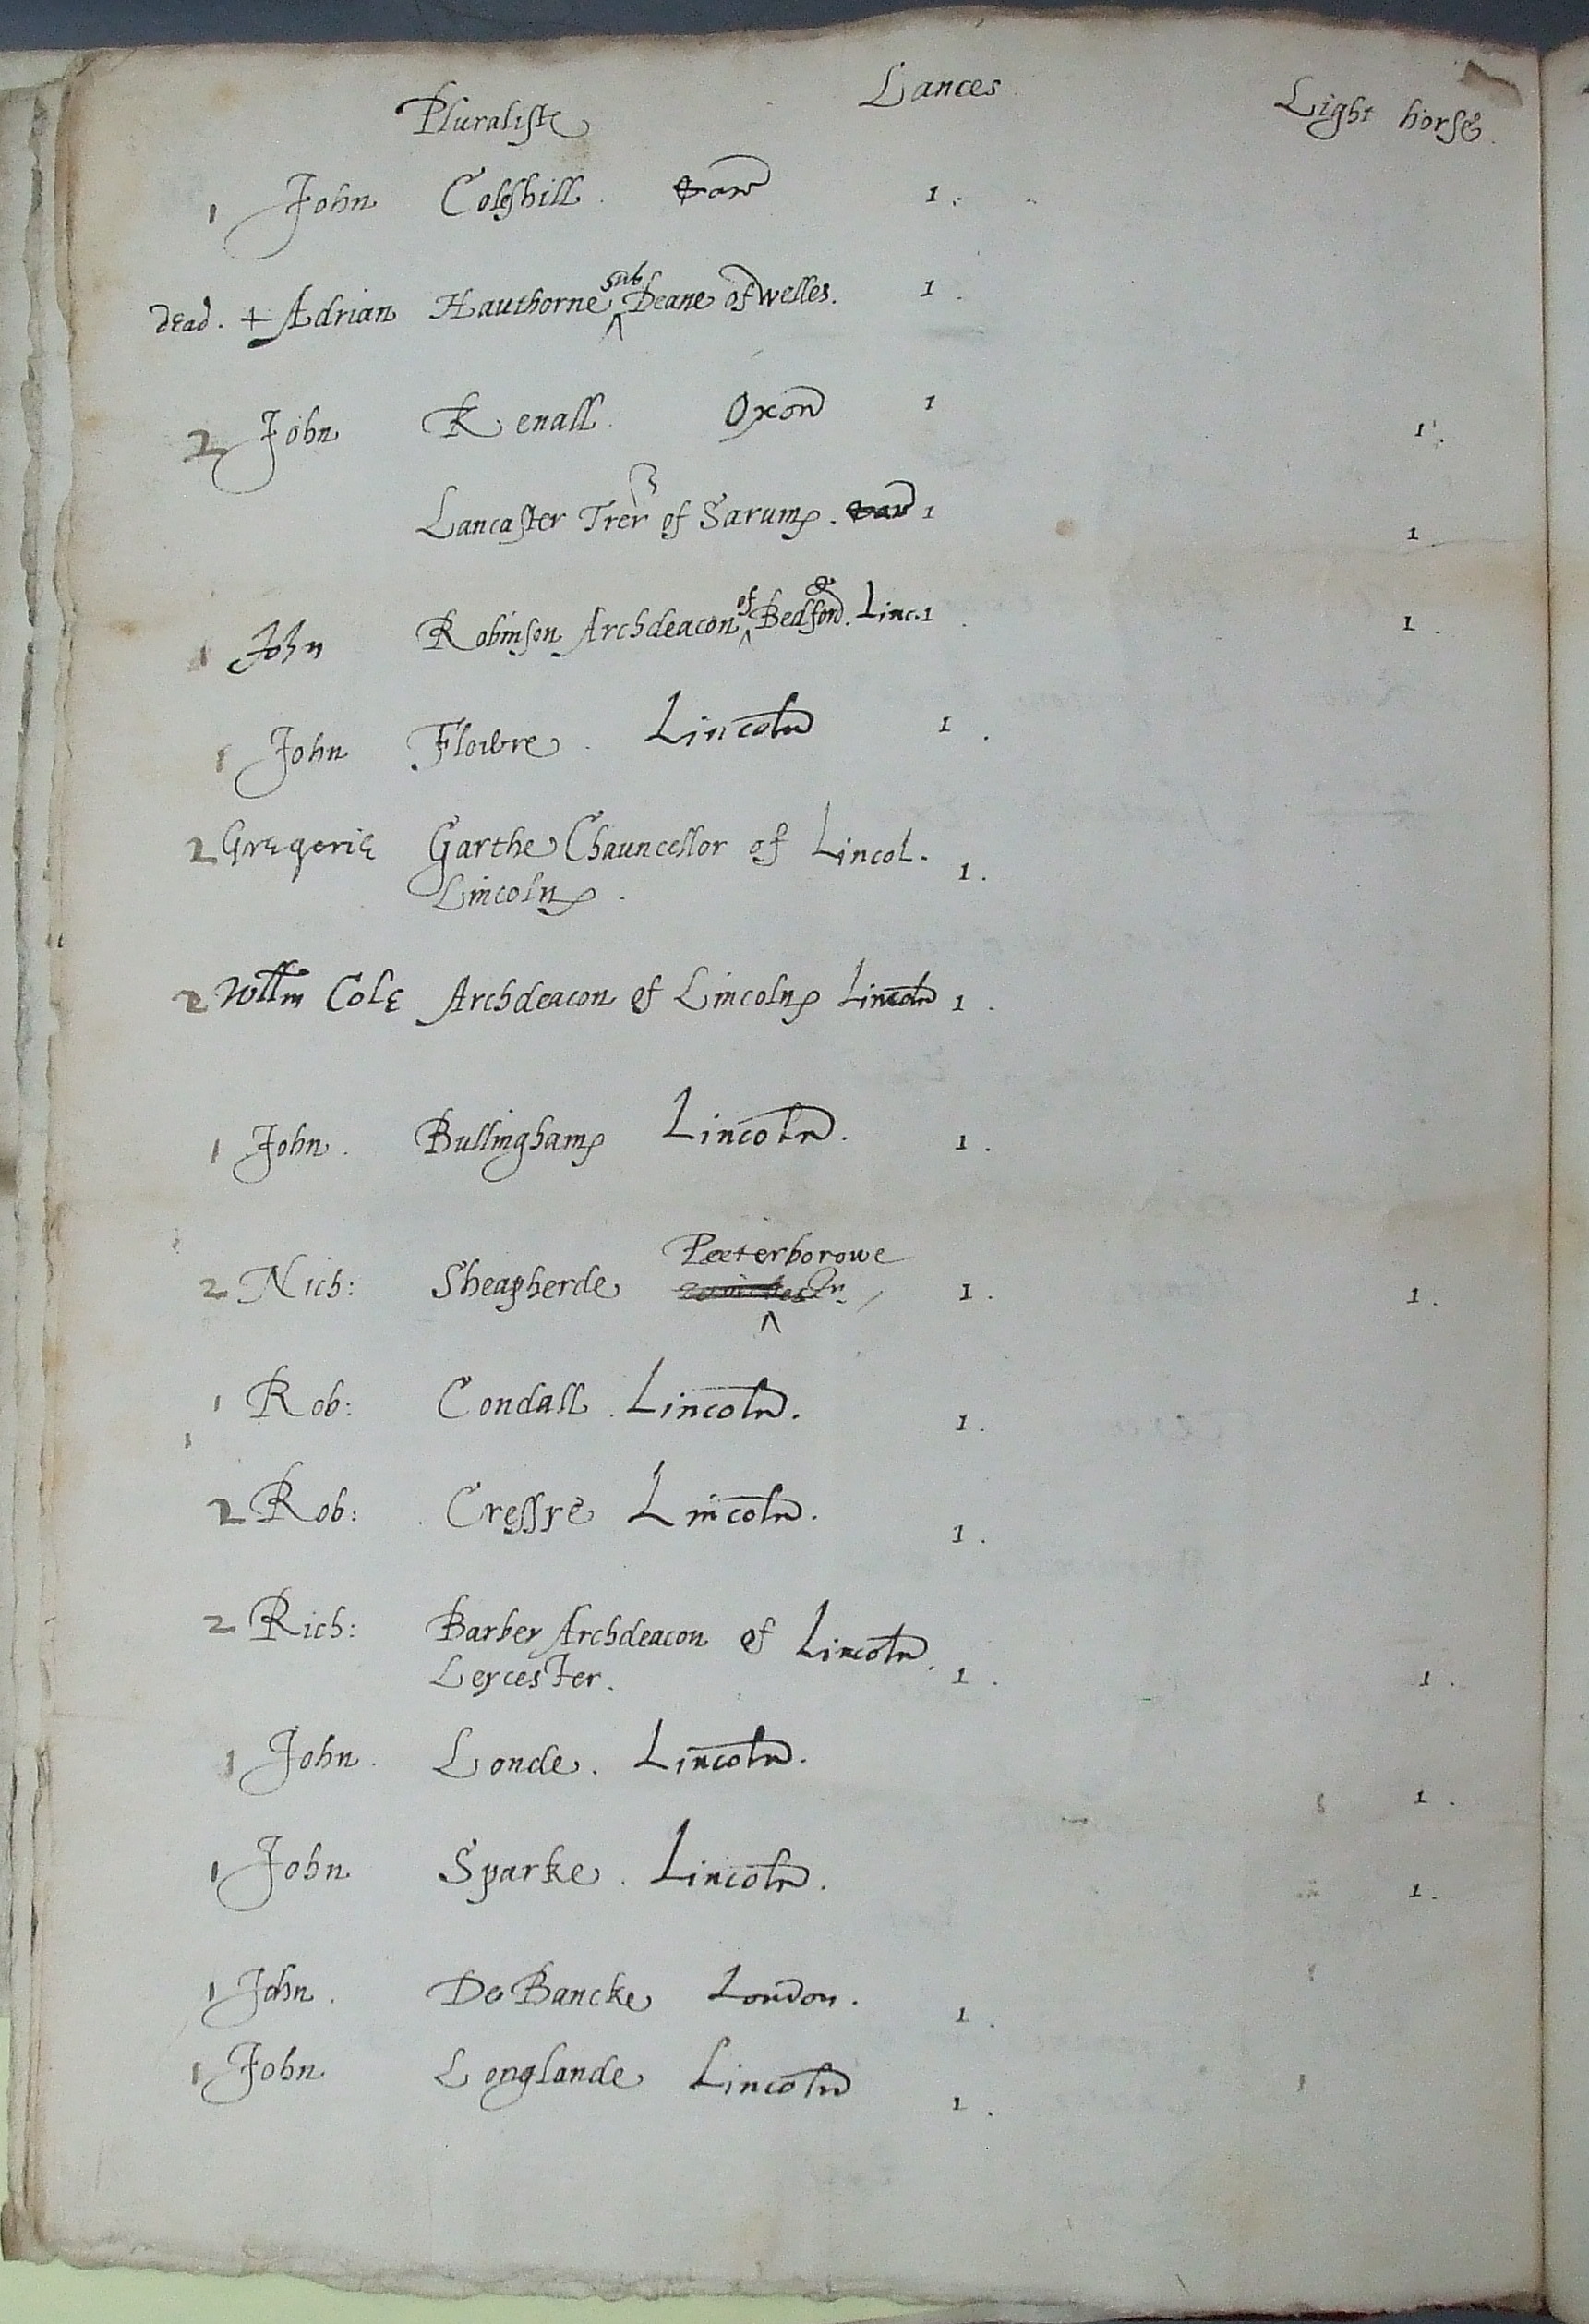 Pluraliste Lances Light horse
1 John Coleshill. 1.
dead. + Adrian Hauthorne sub Deane of Welles. 1.
2 John Kenall. Oxon 1 1.
Lancaster Trer of Sarum. 1 1
1 John Robinson Archdeacon of Bedford. Linc. 1. 1.
1 John Flowre. Lincoln 1.
2 Gregorie Garthe Chauncellor of Lincol. 1.
Lincoln.
2 Willm Cole Archdeacon of Lincoln Lincoln 1.
1 John. Bullingham Lincoln. 1.
Peeterborowe
2 Nich: Sheapherde 1. 1.
1 Rob: Condall. Lincoln. 1.
2 Rob: Cressye Lincoln. 1.
2 Rich: Barber Archdeacon of Lincoln.
Leycester. 1. 1.
1 John. Londe. Lincoln. 1.
1 John Sparke. Lincoln. 1.
1 John. De Bancke London. 1.
1 John Longlande Lincoln 1.